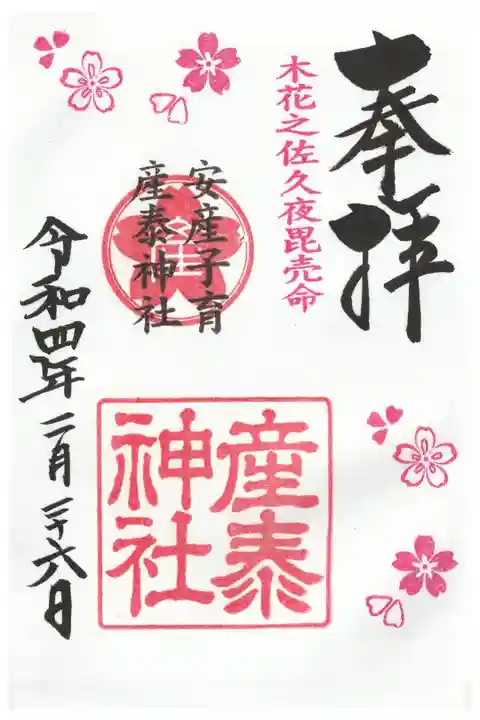 奉拝
木花之佐久夜毘売命
安産子育
産泰神社
産泰
神社
令和四年二月二十六日